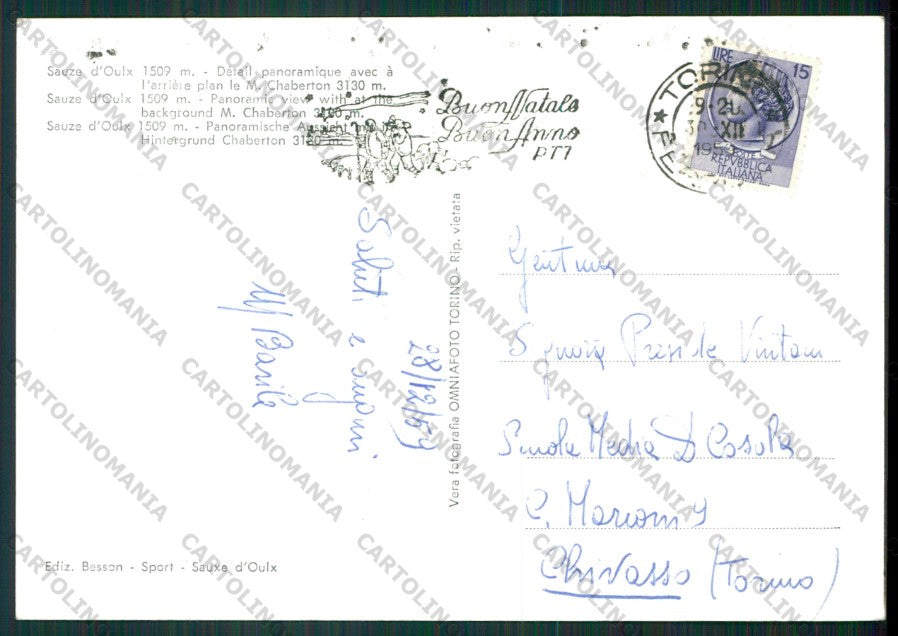 Sauze d'Oulx 1509 m. - Détail panoramique avec à
l'arrière plan le M. Chaberton 3130 m.
Sauze d'Oulx 1509 m. - Panoramic view with at the
background M. Chaberton 3130 m.
Sauze d'Oulx 1509 m. - Panoramische Aussicht mit
Hintergrund Chaberton 3130 m.
Buon Natale
Buon Anno
PTT
TORINO
30 XII
LIRE 15
POSTE
REPVBBLICA
ITALIANA
28/12/59
Saluti e auguri
M Barile
Vera fotografia OMNIAFOTO TORINO - Rip. vietata
Gent.ma
Signora Preside
Scuola Media D Cosola
C. Marconi 9
Chivasso (Torino)
Ediz. Besson - Sport - Sauxe d'Oulx
CARTOLINOMANIA